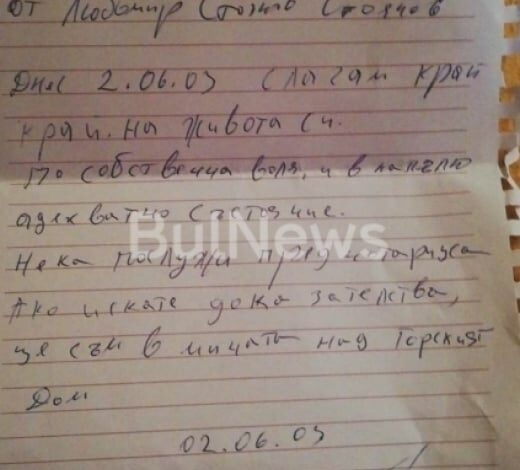 от Любомир Стойчо Стоянов
Днес 2.06.03 слагам край
край. на живота си.
По собственна воля, и в напълно
адекватно състояние.
Нека послужи пред нотариуса
Ако искате дока зателства,
ще съм в мината над Горският
Дом
02.06.03
BulNews